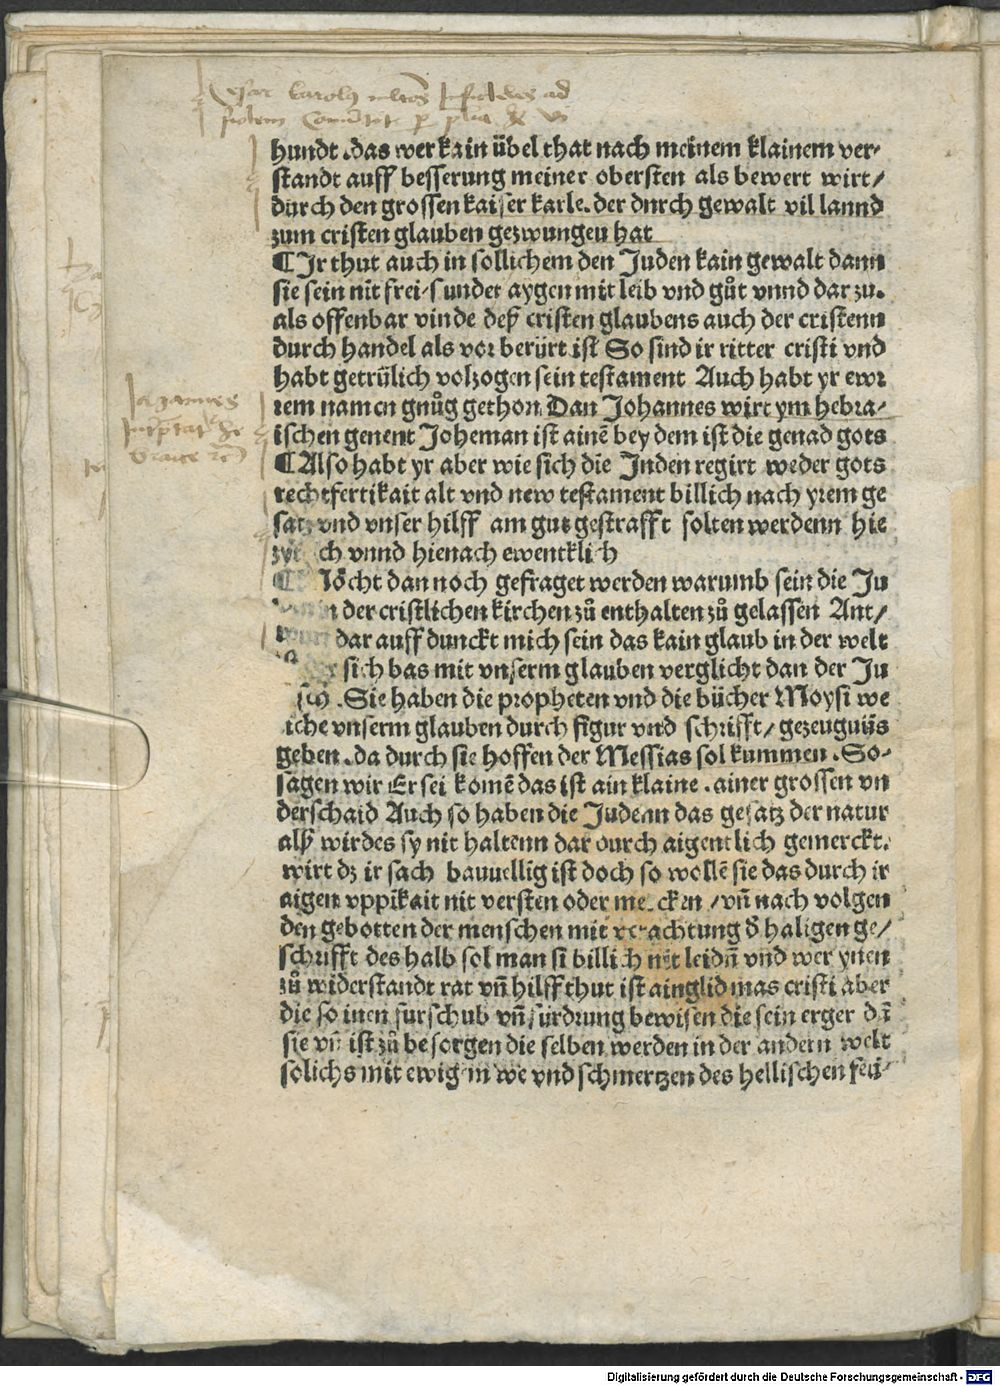 hundt .das wer kain übel that nach meinem klainem ver-
standt auff besserung meiner obersten als bewert wirt/
durch den grossen kaiser karle. der dnrch gewalt vil lannd
zum cristen glauben gezwungen hat
¶Ir thut auch in sollichem den Juden kain gewalt dann
sie sein nit frei/sunder aygen mit leib vnd gůt vnnd dar zu.
als offenbar vinde deß cristen glaubens auch der cristenn
durch handel als vor berürt ist So sind ir ritter cristi vnd
habt getrülich volzogen sein testament Auch habt yr ewr
rem namen gnůg gethon. Dan Johannes wirt ym hebra/
ischen genent Joheman ist ainē bey dem ist die genad gots
¶Also habt yr aber wie sich die Inden regirt weder gots
rechtfertikait alt vnd new testament billich nach yrem ge
satz vnd vnser hilff am gut gestrafft solten werdenn hie
ch vnnd hienach ewentklich
öcht dan noch gefraget werden warumb sein die Ju
der cristlichen kirchen zů enthalten zů gelassen Ant/
dar auff dunckt mich sein das kain glaub in der welt
sich bas mit vnserm glauben verglicht dan der Ju
Sie haben die propheten vnd die bücher Moysi we
iche vnserm glauben durch figur vnd schrifft/ gezeugnüs
geben .da durch sie hoffen der Messias sol kummen .So-
sagen wir Er sei komē das ist ain klaine .ainer grossen vn
derschaid Auch so haben die Judenn das gesatz der natur
alß wirdes sy nit haltenn dar durch aigentlich gemerckt.
wirt dz ir sach bauuellig ist doch so wollē sie das durch ir
aigen vppikait nit versten oder mercken /vn̄ nach volgen
den gebotten der menschen mit verachtung d̄ haligen ge/
schrifft des halb sol man si billich nit leidn̄ vnd wer ynen
zů widerstandt rat vn̄ hilff thut ist ainglidmas cristi aber
die so inen fürschub vn̄ fürdrung bewisen die sein erger dā
sie vn̄ ist zů besorgen die selben werden in der andern welt
solichs mit ewigen we vnd schmertzen des hellischen feü-
Digitalisierung gefördert durch die Deutsche Forschungsgemeinschaft - DFG